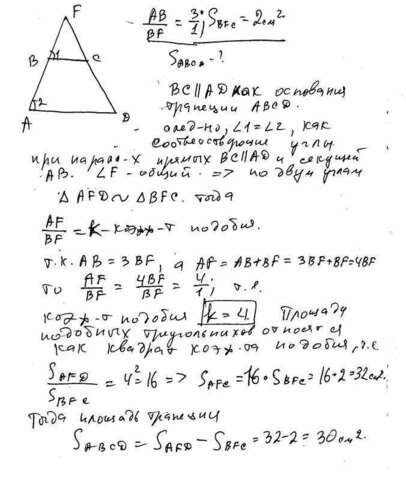 F
AB/BF = 3/1; S_BFC = 2см².
B 1 C
S_ABCD - ?
A 2 D
BC∥AD как основания
трапеции ABCD.
след-но, ∠1=∠2, как
соответствующие углы
при паралл-х прямых BC∥AD и секущей
AB. ∠F - общий. => по двум углам
△ AFD ~ △BFC. Тогда
AF/BF = k - коэф-т подобия.
т.к. AB = 3BF, а AF = AB+BF = 3BF+BF=4BF
то AF/BF = 4BF/BF = 4/1, т.е.
коэф-т подобия k = 4. Площади
подобных треугольников относятся
как квадрат коэф-та подобия, т.е
S_AFD/S_BFC = 4² = 16 => S_AFC = 16 · S_BFC = 16 · 2 = 32см².
Тогда площадь трапеции
S_ABCD = S_AFD - S_BFC = 32-2 = 30см².